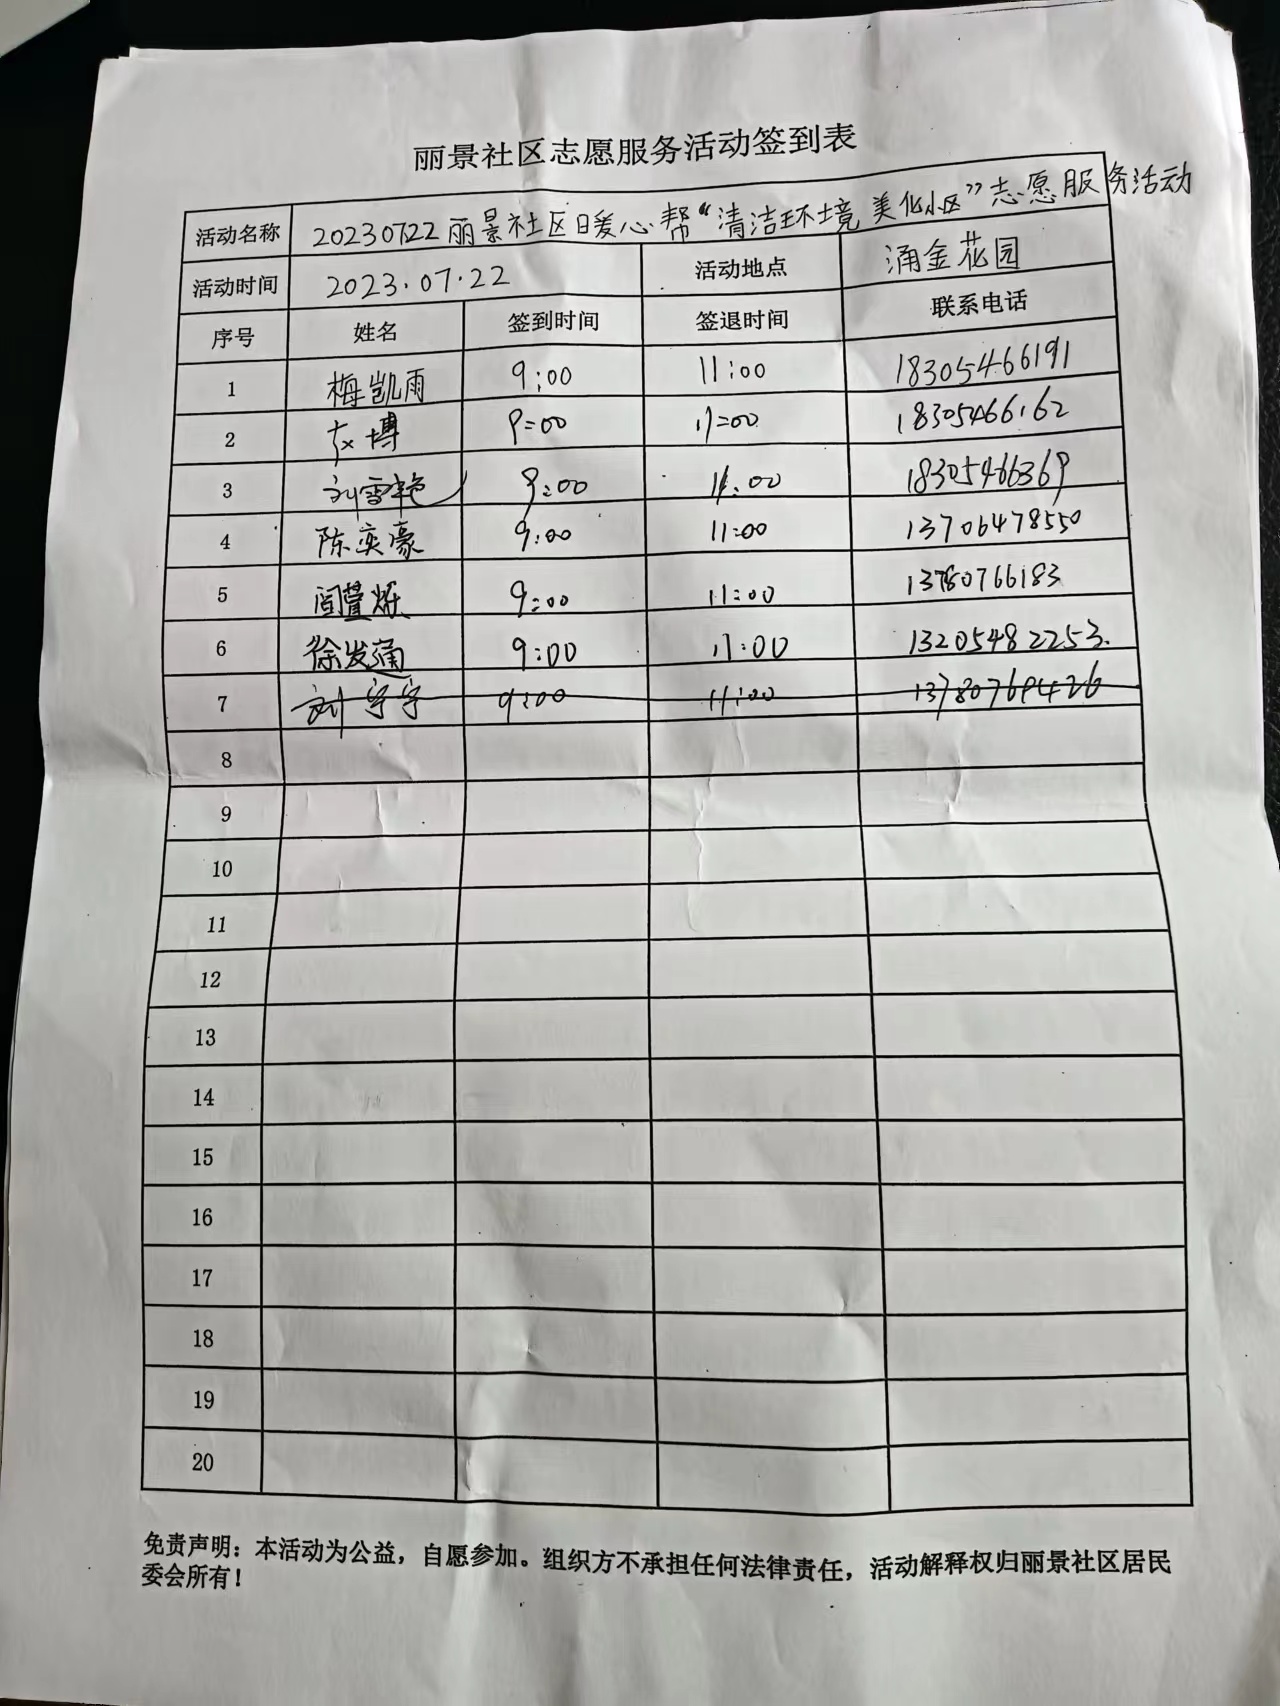 丽景社区志愿服务活动签到表
活动名称 20230722丽景社区日暖心帮“清洁环境 美化小区”志愿服务活动
活动时间 2023.07.22 活动地点 涌金花园
序号 姓名 签到时间 签退时间 联系电话
1 梅凯雨 9:00 11:00 18305466191
2 博 9:00 11:00 18305466162
3 刘雪艳 9:00 11:00 18305466369
4 陈奕豪 9:00 11:00 13706478550
5 阎萱烁 9:00 11:00 13780766183
6 徐发涌 9:00 11:00 13205482253.
7 刘宇宇 9:00 11:00 13780769426
8
9
10
11
12
13
14
15
16
17
18
19
20
免责声明：本活动为公益，自愿参加。组织方不承担任何法律责任，活动解释权归丽景社区居民
委会所有！